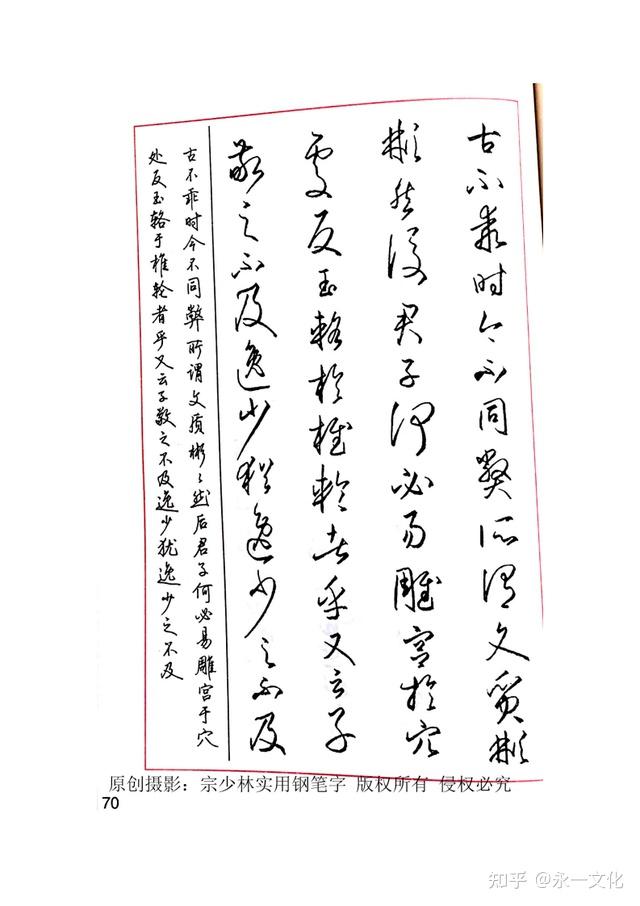 古不乖時今不同弊所謂文質彬
彬然後君子何必易雕宮於穴
處反玉輅於椎輪者乎又云子
敬之不及逸少猶逸少之不及
古不乖时今不同弊所谓文质彬々然后君子何必易雕宫于穴
处反玉辂于椎轮者乎又云子敬之不及逸少犹逸少之不及
原创摄影：宗少林实用钢笔字 版权所有 侵权必究
70
知乎 @永一文化